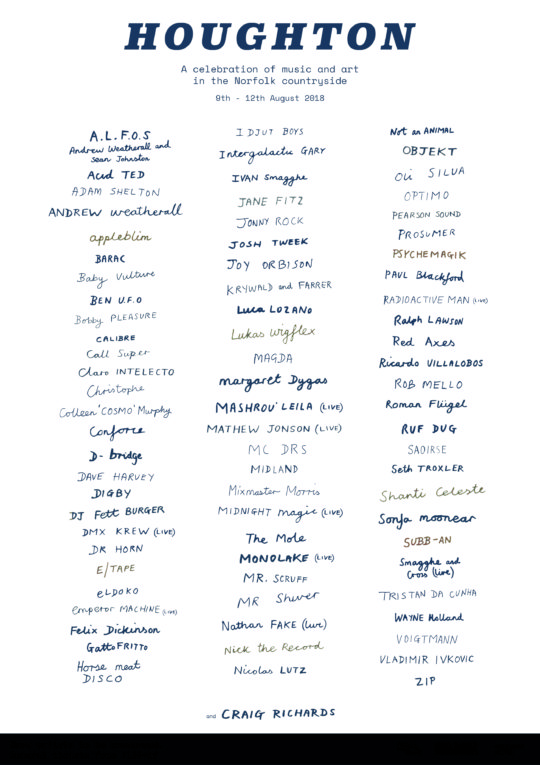 HOUGHTON
A celebration of music and art
in the Norfolk countryside
9th - 12th August 2018
A.L.F.O.S
Andrew Weatherall and
Sean Johnston
Acid TED
ADAM SHELTON
ANDREW weatherall
appleblim
BARAC
Baby Vulture
BEN U.F.O
Bobby PLEASURE
CALIBRE
Call Super
Claro INTELECTO
Christophe
Colleen 'COSMO' Murphy
Conforce
D- bridge
DAVE HARVEY
DIGBY
DJ Fett BURGER
DMX KREW (LIVE)
DR HORN
E/TAPE
eLDOKO
emperor MACHINE (LIVE)
Felix Dickinson
Gatto FRITTO
Horse meat
DISCO
I DJUT BOYS
Intergalactic GARY
IVAN Smagghe
JANE FITZ
JONNY ROCK
JOSH TWEEK
JOY ORBISON
KRYWALD and FARRER
Luca LOZANO
Lukas Wigflex
MAGDA
margaret Dygas
MASHROU' LEILA (LIVE)
MATHEW JONSON (LIVE)
MC DRS
MIDLAND
Mixmaster Morris
MIDNIGHT magic (LIVE)
The Mole
MONOLAKE (LIVE)
MR. SCRUFF
MR Shiver
Nathan FAKE (Live)
Nick the Record
Nicolas LUTZ
Not an ANIMAL
OBJEKT
Oli SILVA
OPTIMO
PEARSON SOUND
PROSUMER
PSYCHEMAGIK
PAUL Blackford
RADIOACTIVE MAN (LIVE)
Ralph LAWSON
Red Axes
Ricardo VILLALOBOS
ROB MELLO
Roman Flügel
RUF DUG
SAOIRSE
Seth TROXLER
Shanti Celeste
Sonja moonear
SUBB-AN
Smagghe and
Cross (live)
TRISTAN DA CUNHA
WAYNE Holland
VOIGTMANN
VLADIMIR IVKOVIC
ZIP
and CRAIG RICHARDS